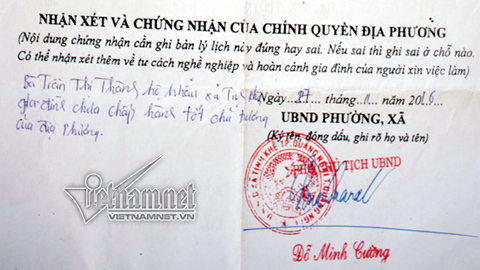 NHẬN XÉT VÀ CHỨNG NHẬN CỦA CHÍNH QUYỀN ĐỊA PHƯƠNG
(Nội dung chứng nhận cần ghi bản lý lịch này đúng hay sai. Nếu sai thì ghi sai ở chỗ nào.
Có thể nhận xét thêm về tư cách nghề nghiệp và hoàn cảnh gia đình của người xin việc làm)
Bà Trần Thị Thành hộ khẩu xã Tịnh
Ngày...27...tháng...11...năm 2016
gia đình chưa chấp hành tốt chủ trương
của địa phương.
UBND PHƯỜNG, XÃ
(Ký tên, đóng dấu, ghi rõ họ và tên)
PHÓ CHỦ TỊCH UBND
U.B.N.D XÃ TỊNH KHÊ TP. QUẢNG NGÃI T. QUẢNG NGÃI
Vietnam.net
VIETNAMNET.VN
Đỗ Minh Cường